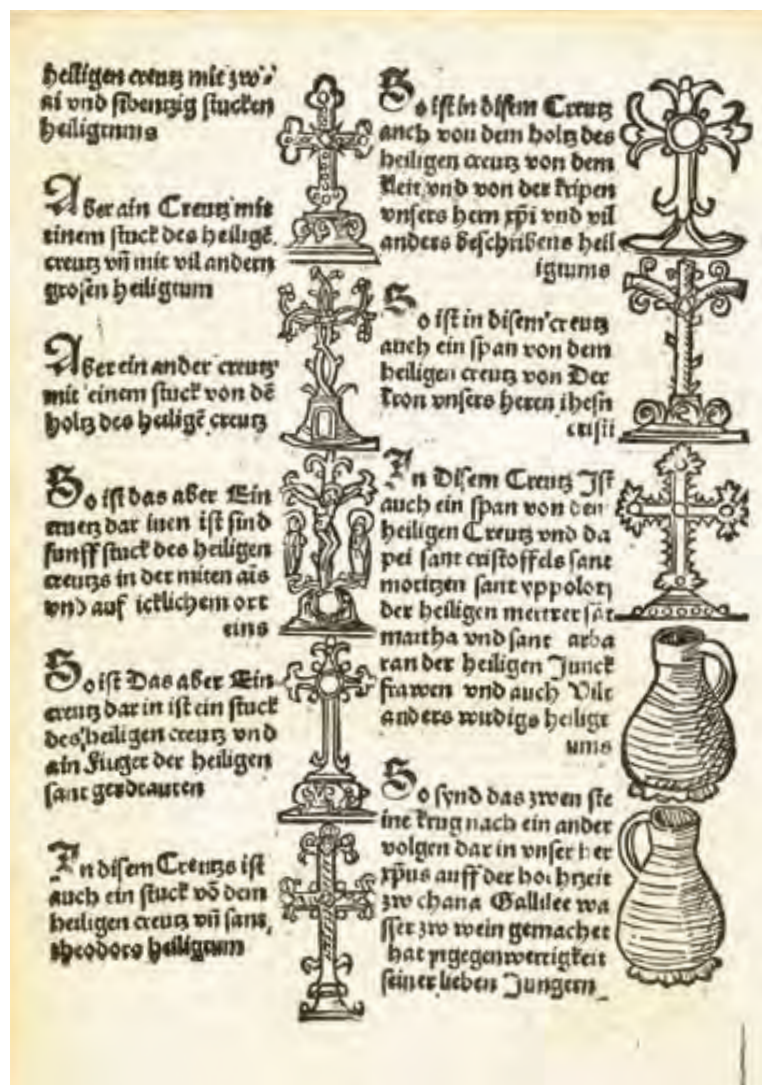 heiligen creutz mit zwo
ni vnd sibentzig stucken
heiligtums
Aber ain Creutz mit
einem stuck des heilige͂
creutz vn͂ mit vil andern
grosen heiligtum
Aber ein ander creutz
mit einem stuck von de͂
holtz des heilige͂ creutz
So ist das aber Ein
creutz dar inen ist sind
funff stuck des heiligen
creutzs in der miten ais
vnd auf icklichem ort
eins
So ist Das aber Ein
creutz dar in ist ein stuck
des heiligen creutz vnd
ain Finger der heiligen
sant gerdrauten
In disem Creutzs ist
auch ein stuck vo͂ dem
heiligen creutz vn͂ sant
theodors heiligtum
So ist in disem Creutz
auch von dem holtz des
heiligen creutz von dem
kleit vnd von der kripen
vnsers hern xp͂i vnd vil
anders beschribens heil
igtums
So ist in disem creutz
auch ein span von dem
heiligen creutz von Der
kron vnsers heren ihesu
cristi
In Disem Creutz Jst
auch ein span von den
heiligen Creutz vnd da
pei sant cristoffels sant
moritzen sant yppolotz
der heiligen mertrer sa͂t
martha vnd sant arba
ran der heiligen Junck
frawen vnd auch Vile
anders wirdigs heiligt
ums
So synd das zwen ste
ine krug nach ein ander
volgen dar in vnser her
xp͂us auff der hochtzeit
zw chana Gallilee wa
sser zw wein gemachet
hat in gegenwertigkeit
seiner lieben Jungern